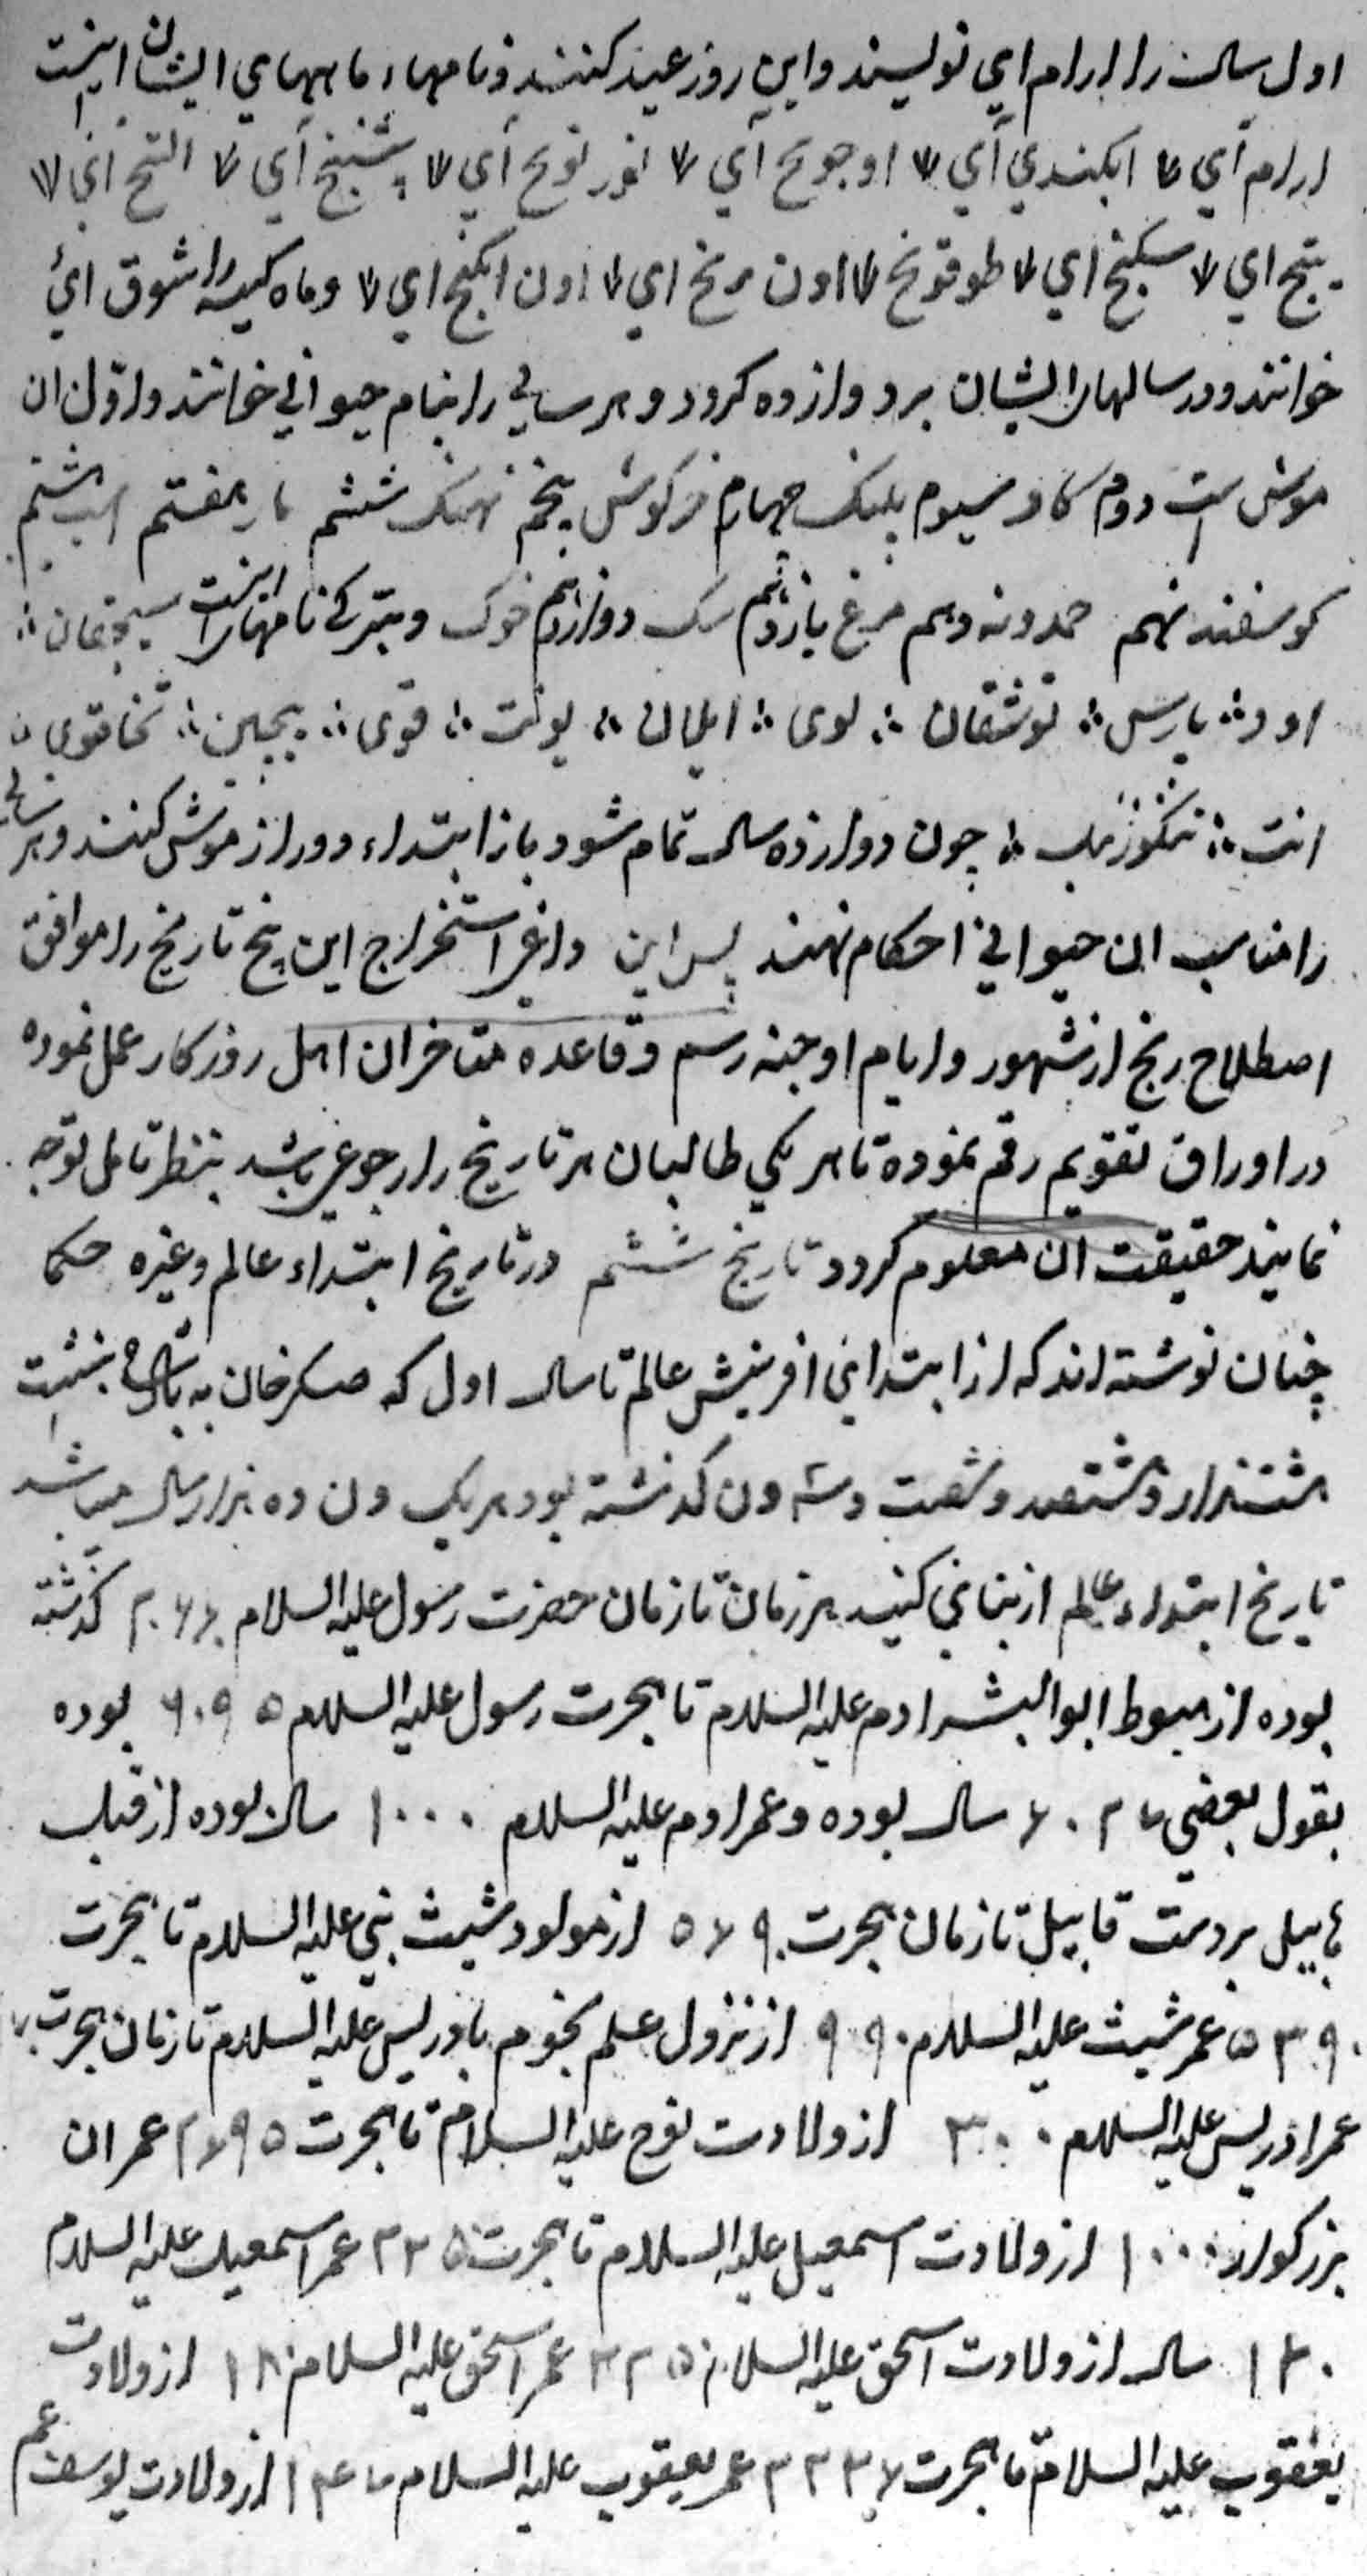 اول سال را ارام ای نویسند و این روز عید کنند و نامهاء ماههای ایشان اینست
ارام آی ایکندی آی اوجونج آی آی آی آی
ای سکنج ای طوقونج اون ای اون ای و ماه کبیسه را شوق ای
خوانند و در سالها ایشان بر دوازده کردد و هر سالی را بنام حیوانی خوانند و اول ان
موش است دوم کاو سیوم پلنک چهارم خرکوش پنجم نهنک ششم مار هفتم اسب هشتم
کوسفند نهم حمدونه دهم مرغ یازدهم سک دوازدهم خوک و بترکے نامها اینست سیچقان ؞
اود ؞ پارس ؞ توشقان ؞ لوی ؞ ایلان ؞ یونت ؞ قوی ؞ بیجین ؞ تخاقوی
ایت ؞ تنکوز ؞ چون دوازده سال تمام شود باز ابتداء دور از موش کنند و هر سالی
را مناسب ان حیوانی احکام نهند پس این استخراج این پنج تاریخ را موافق
اصطلاح زیج از شهور و ایام رسم و قاعده متاخران اهل روزکار عمل نموده
در اوراق تقویم رقم نموده تا هر یکی طالبان هر تاریخ را رجوعی باشد بنظر تامل توجه
نمایند حقیقت ان معلوم کردد تاریخ ششم در تاریخ ابتداء عالم وغیره حکما
چنان نوشته اند که از ابتدای افرینش عالم تا سال اول که خان به پادشاهی بنشست
هشتهزار و هشتصد و شصت و سه ون کذشته بود هر یک ون ده هزار سال میباشد
تاریخ ابتداء عالم از بنای تا زمان حضرت رسول علیه السلام کذشته
بوده از هبوط ابو البشر ادم علیه السلام تا هجرت رسول علیه السلام ۶۰۹۵ بوده
بقول بعضی سال بوده و عمر ادم علیه السلام ۱۰۰۰ سال بوده از قتل
هابیل بر دست قابیل تا زمان هجرت از مولود شیث نبی علیه السلام تا هجرت
۵۳۹۰ عمر شیث علیه السلام از نزول علم نجوم بادریس علیه السلام تا زمان هجرت
عمر ادریس علیه السلام ۳۰۰ از ولادت نوح علیه السلام تا هجرت عمر ان
بزرکوار ۱۰۰۰ از ولادت اسمعیل علیه السلام تا هجرت عمر اسمعیل علیه السلام
سال از ولادت اسحق علیه السلام عمر اسحق علیه السلام ۱۸۰ از ولادت
یعقوب علیه السلام تا هجرت عمر یعقوب علیه السلام از ولادت یوسف عم